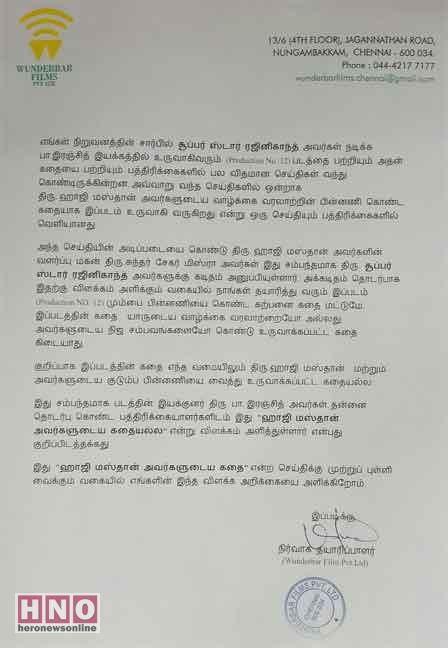 WUNDERBAR
FILMS
PVT LTD
13/6 (4TH FLOOR), JAGANNATHAN ROAD,
NUNGAMBAKKAM, CHENNAI - 600 034.
Phone : 044-4217 7177
wunderbarfilms.chennai@gmail.com
எங்கள் நிறுவனத்தின் சார்பில் சூப்பர் ஸ்டார் ரஜினிகாந்த் அவர்கள் நடிக்க
பா.இரஞ்சித் இயக்கத்தில் உருவாகிவரும் (Production No. 12) படத்தை பற்றியும் அதன்
கதையை பற்றியும் பத்திரிக்கைகளில் பல விதமான செய்திகள் வந்து
கொண்டிருக்கின்றன. அவ்வாறு வந்த செய்திகளில் ஒன்றாக
திரு.ஹாஜி மஸ்தான் அவர்களுடைய வாழ்க்கை வரலாற்றின் பின்னணி கொண்ட
கதையாக இப்படம் உருவாகி வருகிறது என்று ஒரு செய்தியும் பத்திரிக்கைகளில்
வெளியானது.
அந்த செய்தியின் அடிப்படையை கொண்டு திரு.ஹாஜி மஸ்தான் அவர்களின்
வளர்ப்பு மகன் திரு.சுந்தர் சேகர் மிஸ்ரா அவர்கள் இது சம்பந்தமாக திரு. சூப்பர்
ஸ்டார் ரஜினிகாந்த் அவர்களுக்கு கடிதம் அனுப்பியுள்ளார். அக்கடிதம் தொடர்பாக
இதற்கு விளக்கம் அளிக்கும் வகையில் நாங்கள் தயாரித்து வரும் இப்படம்
(Production NO. 12) மும்பை பின்னணியை கொண்ட கற்பனை கதை மட்டுமே.
இப்படத்தின் கதை யாருடைய வாழ்க்கை வரலாற்றையோ அல்லது
அவர்களுடைய நிஜ சம்பவங்களையோ கொண்டு உருவாக்கப்பட்ட கதை
கிடையாது.
குறிப்பாக இப்படத்தின் கதை எந்த வகையிலும் திரு.ஹாஜி மஸ்தான் மற்றும்
அவர்களுடைய குடும்ப பின்னணியை வைத்து உருவாக்கப்பட்ட கதையல்ல.
இது சம்பந்தமாக படத்தின் இயக்குனர் திரு. பா.இரஞ்சித் அவர்கள், தன்னை
தொடர்பு கொண்ட பத்திரிக்கையாளர்களிடம் இது "ஹாஜி மஸ்தான்
அவர்களுடைய கதையல்ல" என்று விளக்கம் அளித்துள்ளார் என்பது
குறிப்பிடத்தக்கது.
இது "ஹாஜி மஸ்தான் அவர்களுடைய கதை" என்ற செய்திக்கு முற்றுப் புள்ளி
வைக்கும் வகையில் எங்களின் இந்த விளக்க அறிக்கையை அளிக்கிறோம்.
இப்படிக்கு
நிர்வாக தயாரிப்பாளர்
(Wunderbar Film Pvt.Ltd)
WUNDERBAR FILMS PVT. LTD
CHENNAI
600 034
HNO
heronewsonline